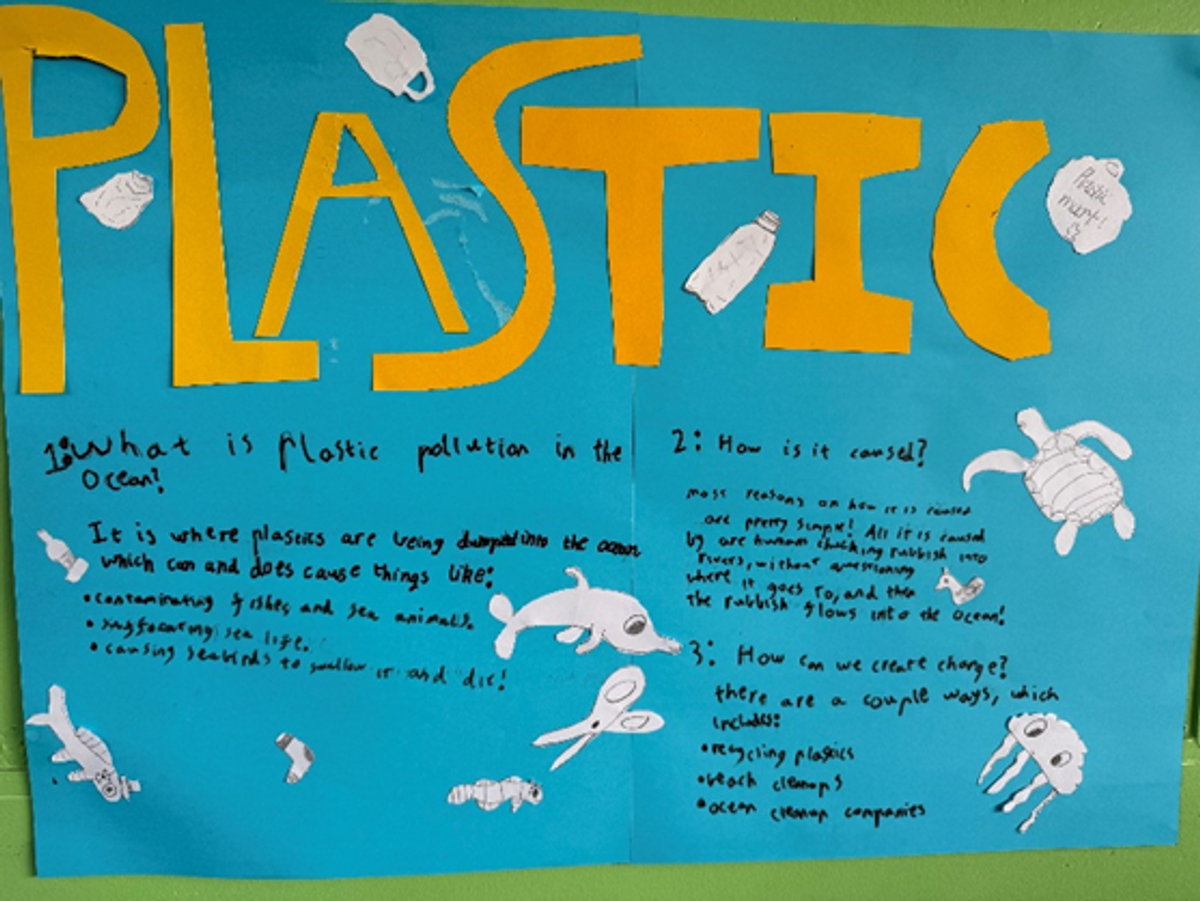 PLASTIC
Plastic
mart!
1: What is Plastic pollution in the
Ocean?
It is where plastics are being dumped into the ocean
which can and does cause things like:
• contaminating fishes and sea animals.
• suffocating sea life.
• causing seabirds to swallow it and die!
2: How is it caused?
most reasons on how it is caused
are pretty simple! All it is caused
by are human chucking rubbish into
rivers, without questioning
where it goes to, and then
the rubbish flows into the ocean!
3: How can we create change?
there are a couple ways, which
includes:
• recycling plastics
• beach cleanups
• ocean cleanup companies